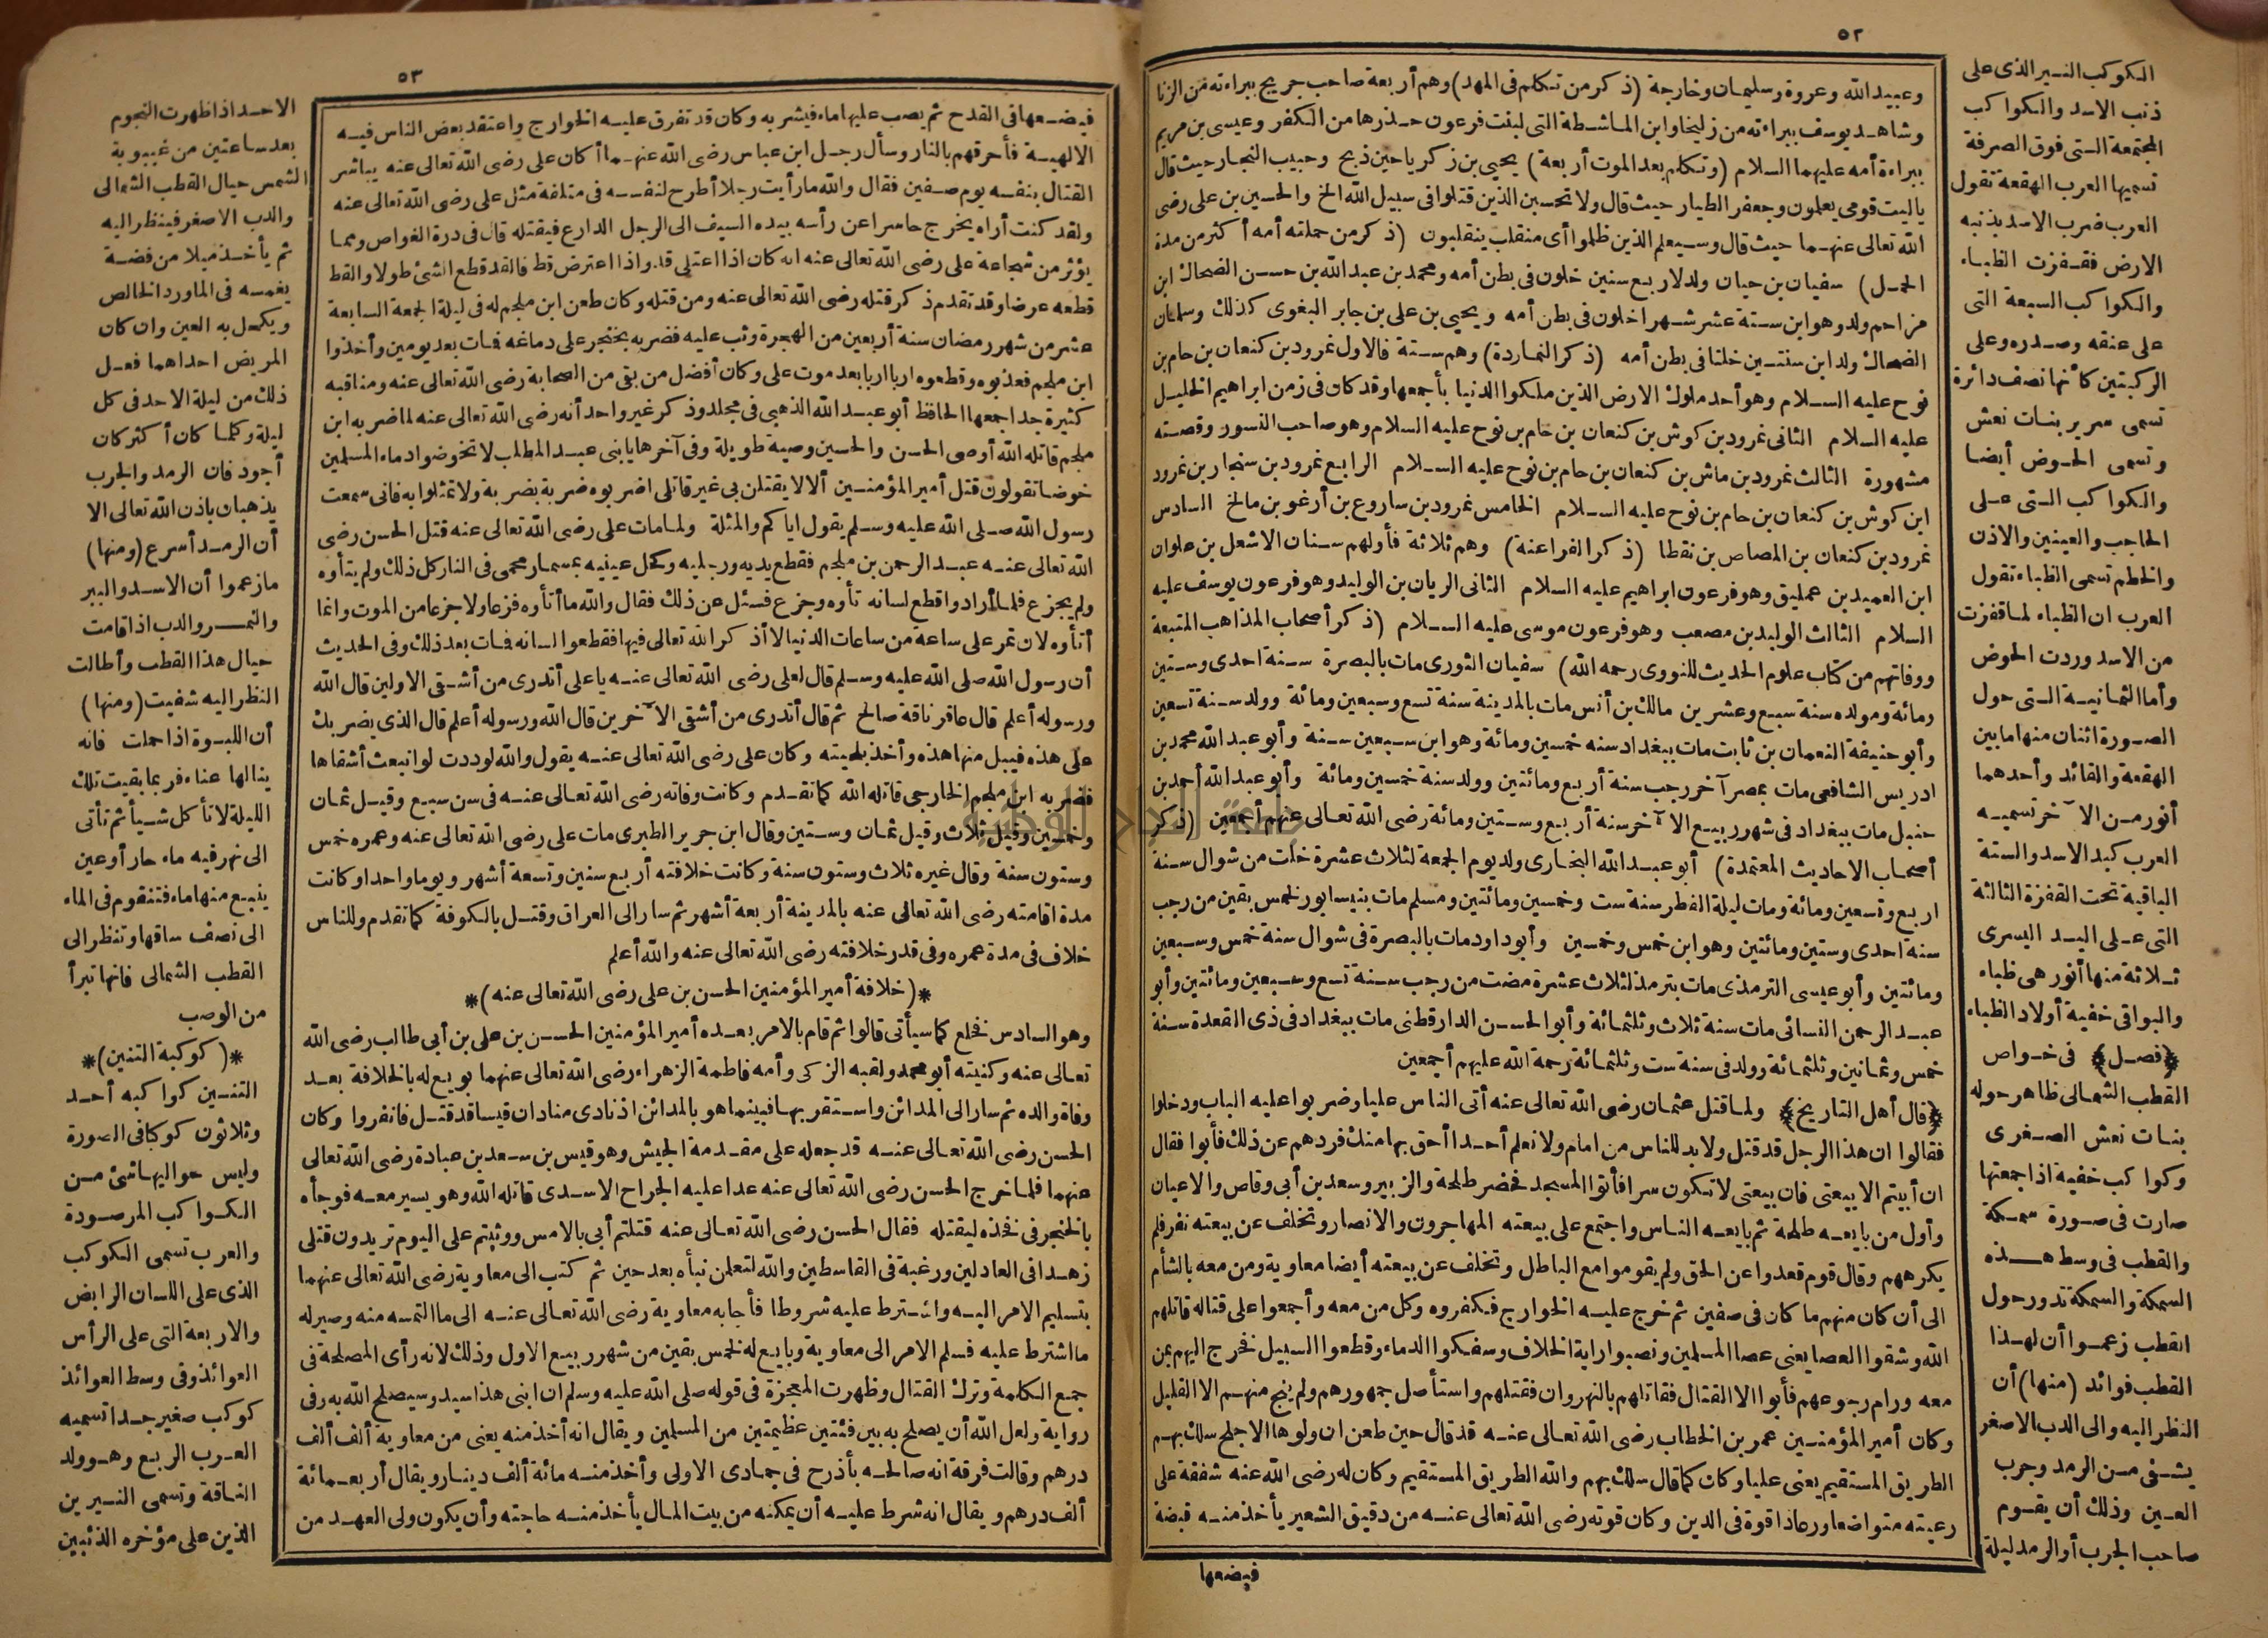 ٥٢
وعبيد الله وعروة وسليمان وخارجة (ذكر من تكلم فى المهد) وهم أربعة صاحب جريج ببراءته من الزنا
وشاهد يوسف ببراءته من زليخا وابن الماشطة التى لبنت فرعون حذرها من الكفر وعيسى بن مريم
ببراءة أمه عليهما السلام (وتكلم بعد الموت أربعة) يحيى بن زكريا حين ذبح وحبيب النجار حيث قال
ياليت قومى يعلمون وجعفر الطيار حيث قال ولا تحسبن الذين قتلوا فى سبيل الله الخ والحسين بن على رضى
الله تعالى عنهما حيث قال وسيعلم الذين ظلموا أى منقلب ينقلبون (ذكر من حملته أمه أكثر من مدة
الحمل) سفيان بن حيان ولد لاربع سنين خلون فى بطن أمه ومحمد بن عبد الله بن حسن الضحاك ابن
مزاحم ولد وهو ابن ستة عشر شهرا خلون فى بطن أمه ويحيى بن على بن جابر البغوى كذلك وسلمان
الضحاك ولد ابن سنتين خلتا فى بطن أمه (ذكر النماردة) وهم ستة فالاول نمرود بن كنعان بن حام بن
نوح عليه السلام وهو أحد ملوك الارض الذين ملكوا الدنيا بأجمعها وقد كان فى زمن ابراهيم الخليل
عليه السلام الثانى نمرود بن كوش بن كنعان بن حام بن نوح عليه السلام وهو صاحب النسور وقصته
مشهورة الثالث نمرود بن ماش بن كنعان بن حام بن نوح عليه السلام الرابع نمرود بن سنجار بن نمرود
ابن كوش بن كنعان بن حام بن نوح عليه السلام الخامس نمرود بن ساروع بن أرغو بن مالخ السادس
نمرود بن كنعان بن المصاص بن نقطا (ذكر الفراعنة) وهم ثلاثة فأولهم سنان الاشعل بن علوان
ابن العميد بن عمليق وهو فرعون ابراهيم عليه السلام الثانى الريان بن الوليد وهو فرعون يوسف عليه
السلام الثالث الوليد بن مصعب وهو فرعون موسى عليه السلام (ذكر أصحاب المذاهب المتبعة
ووفاتهم من كتاب علوم الحديث للنووى رحمه الله) سفيان الثورى مات بالبصرة سنة احدى وستين
ومائة ومولده سنة سبع وعشرين مالك بن أنس مات بالمدينة سنة تسع وسبعين ومائة وولد سنة تسعين
وأبو حنيفة النعمان بن ثابت مات ببغداد سنه خمسين ومائة وهو ابن سبعين سنة وأبو عبد الله محمد بن
ادريس الشافعى مات بمصر آخر رجب سنة أربع ومائتين وولد سنة خمسين ومائة وأبو عبد الله أحمد بن
حنبل مات ببغداد فى شهر ربيع الآخر سنة أربع وستين ومائة رضى الله تعالى عنهم أجمعين (ذكر
أصحاب الاحاديث المعتمدة) أبو عبد الله البخارى ولد يوم الجمعة لثلاث عشرة خلت من شوال سنة
اربع وتسعين ومائة ومات ليلة الفطر سنة ست وخمسين ومائتين ومسلم مات بنيسابور لخمس بقين من رجب
سنة احدى وستين ومائتين وهو ابن خمس وخمسين وأبو داود مات بالبصرة فى شوال سنة خمس وسبعين
ومائتين وأبو عيسى الترمذى مات بترمذ لثلاث عشرة مضت من رجب سنة تسع وسبعين ومائتين وأبو
عبد الرحمن النسائى مات سنة ثلاث وثلثمائة وأبو الحسن الدارقطنى مات ببغداد فى ذى القعدة سنة
خمس وثمانين وثلثمائة وولد فى سنة ست وثلثمائة رحمة الله عليهم أجمعين
﴿قال أهل التاريخ﴾ ولما قتل عثمان رضى الله تعالى عنه أتى الناس عليا وضربوا عليه الباب ودخلوا
فقالوا ان هذا الرجل قد قتل ولا بد للناس من امام ولا نعلم أحدا أحق بها منك فردهم عن ذلك فأبوا فقال
ان أبيتم الا بيعتى فان بيعتى لا تكون سرا فأتوا المسجد فحضر طلحة والزبير وسعد بن أبى وقاص والاعيان
وأول من بايعه طلحة ثم بايعه الناس واجتمع على بيعته المهاجرون والانصار وتخلف عن بيعته نفر فلم
يكرههم وقال قوم قعدوا عن الحق ولم يقوموا مع الباطل وتخلف عن بيعته أيضا معاوية ومن معه بالشأم
الى أن كان منهم ما كان فى صفين ثم خرج عليه الخوارج فكفروه وكل من معه وأجمعوا على قتاله قاتلهم
الله وشقوا العصا يعنى عصا المسلمين ونصبوا راية الخلاف وسفكوا الدماء وقطعوا السبيل فخرج اليهم بمن
معه ورام رجوعهم فأبوا الا القتال فقاتلهم بالنهروان فقتلهم واستأصل جمهورهم ولم ينج منهم الا القليل
وكان أمير المؤمنين عمر بن الخطاب رضى الله تعالى عنه قد قال حين طعن ان ولوها الاجلح سلك بهم
الطريق المستقيم يعنى عليا وكان كما قال سلك بهم والله الطريق المستقيم وكان له رضى الله عنه شفقة على
رعيته متواضعا ورعا ذا قوة فى الدين وكان قوته رضى الله تعالى عنه من دقيق الشعير يأخذ منه قبضة
فيضعها
الكوكب النير الذى على
ذنب الاسد والكواكب
المجتمعة التى فوق الصرفة
تسميها العرب الهقعة تقول
العرب ضرب الاسد بذنبه
الارض فقفزت الظباء
والكواكب السبعة التى
على عنقه وصدره وعلى
الركبتين كأنها نصف دائرة
تسمى سرير بنات نعش
وتسمى الحوض أيضا
والكواكب التى على
الحاجب والعينين والاذن
والخطم تسمى الظباء تقول
العرب ان الظباء لما قفزت
من الاسد وردت الحوض
وأما الثمانية التى حول
الصورة اثنان منها ما بين
الهقعة والقائد وأحدهما
أنور من الآخر تسميه
العرب كبد الاسد والستة
الباقية تحت القفزة الثالثة
التى على اليد اليسرى
ثلاثة منها أنور هى ظباء
والبواقى خفية أولاد الظباء
﴿فصل﴾ فى خواص
القطب الشمالى ظاهر حوله
بنات نعش الصغرى
وكواكب خفية اذا جمعتها
صارت فى صورة سمكة
والقطب فى وسط هذه
السمكة والسمكة تدور حول
القطب زعموا أن لهذا
القطب فوائد (منها) أن
النظر اليه والى الدب الاصغر
يشفى من الرمد وجرب
العين وذلك أن يقوم
صاحب الجرب أو الرمد ليلة
٥٣
فيضعها فى القدح ثم يصب عليها ماء فيشربه وكان قد تفرق عليه الخوارج واعتقد بعض الناس فيه
الالهية فأحرقهم بالنار وسأل رجل ابن عباس رضى الله عنهما أكان على رضى الله تعالى عنه يباشر
القتال بنفسه يوم صفين فقال والله ما رأيت رجلا أطرح لنفسه فى متلفة مثل على رضى الله تعالى عنه
ولقد كنت أراه يخرج حاسرا عن رأسه بيده السيف الى الرجل الدارع فيقتله قال فى درة الغواص ومما
يؤثر من شجاعة على رضى الله تعالى عنه انه كان اذا اعتلى قد واذا اعترض قط فالقد قطع الشئ طولا والقط
قطعه عرضا وقد تقدم ذكر قتله رضى الله تعالى عنه ومن قتله وكان طعن ابن ملجم له فى ليلة الجمعة السابعة
عشر من شهر رمضان سنة أربعين من الهجرة وثب عليه فضربه بخنجر على دماغه فمات بعد يومين وأخذوا
ابن ملجم فعذبوه وقطعوه اربا اربا بعد موت على وكان أفضل من بقى من الصحابة رضى الله تعالى عنه ومناقبه
كثيرة جدا جمعها الحافظ أبو عبد الله الذهبى فى مجلد وذكر غير واحد أنه رضى الله تعالى عنه لما ضربه ابن
ملجم قاتله الله أوصى الحسن والحسين وصية طويلة وفى آخرها يا بنى عبد المطلب لا تخوضوا دماء المسلمين
خوضا تقولون قتل أمير المؤمنين ألا لا يقتلن بى غير قاتلى اضربوه ضربة بضربة ولا تمثلوا به فانى سمعت
رسول الله صلى الله عليه وسلم يقول اياكم والمثلة ولما مات على رضى الله تعالى عنه قتل الحسن رضى
الله تعالى عنه عبد الرحمن بن ملجم فقطع يديه ورجليه وكحل عينيه بمسمار محمى فى النار كل ذلك ولم يتأوه
ولم يجزع فلما أرادوا قطع لسانه تأوه وجزع فسئل عن ذلك فقال والله ما أتأوه فزعا ولا جزعا من الموت وانما
أتأوه لان تمر على ساعة من ساعات الدنيا لا أذكر الله تعالى فيها فقطعوا لسانه فمات بعد ذلك وفى الحديث
أن رسول الله صلى الله عليه وسلم قال لعلى رضى الله تعالى عنه يا على أتدرى من أشقى الاولين قال الله
ورسوله أعلم قال عاقر ناقة صالح ثم قال أتدرى من أشقى الآخرين قال الله ورسوله أعلم قال الذى يضربك
على هذه فيبل منها هذه وأخذ بلحيته وكان على رضى الله تعالى عنه يقول والله لوددت لو انبعث أشقاها
فضربه ابن ملجم الخارجى قاتله الله كما تقدم وكانت وفاته رضى الله تعالى عنه فى سن سبع وقيل ثمان
وخمسين وقيل ثلاث وقيل ثمان وستين وقال ابن جرير الطبرى مات على رضى الله تعالى عنه وعمره خمس
وستون سنة وقال غيره ثلاث وستون سنة وكانت خلافته أربع سنين وتسعة أشهر ويوما واحدا وكانت
مدة اقامته رضى الله تعالى عنه بالمدينة أربعة أشهر ثم سار الى العراق وقتل بالكوفة كما تقدم وللناس
خلاف فى مدة عمره وفى قدر خلافته رضى الله تعالى عنه والله أعلم
*(خلافة أمير المؤمنين الحسن بن على رضى الله تعالى عنه)*
وهو السادس فخلع كما سيأتى قالوا ثم قام بالامر بعده أمير المؤمنين الحسن بن على بن أبى طالب رضى الله
تعالى عنه وكنيته أبو محمد ولقبه الزكى وأمه فاطمة الزهراء رضى الله تعالى عنهما بويع له بالخلافة بعد
وفاة والده ثم سار الى المدائن واستقر بها فبينما هو بالمدائن اذ نادى مناد ان قيسا قد قتل فانفروا وكان
الحسن رضى الله تعالى عنه قد جعله على مقدمة الجيش وهو قيس بن سعد بن عبادة رضى الله تعالى
عنهما فلما خرج الحسن رضى الله تعالى عنه عدا عليه الجراح الاسدى قاتله الله وهو يسير معه فوجأه
بالخنجر فى فخذه ليقتله فقال الحسن رضى الله تعالى عنه قتلتم أبى بالامس ووثبتم على اليوم تريدون قتلى
زهدا فى العادلين ورغبة فى القاسطين والله لتعلمن نبأه بعد حين ثم كتب الى معاوية رضى الله تعالى عنهما
بتسليم الامر اليه واشترط عليه شروطا فأجابه معاوية رضى الله تعالى عنه الى ما التمسه منه وصير له
ما اشترط عليه فسلم الامر الى معاوية وبايع له لخمس بقين من شهر ربيع الاول وذلك لانه رأى المصلحة فى
جمع الكلمة وترك القتال وظهرت المعجزة فى قوله صلى الله عليه وسلم ان ابنى هذا سيد وسيصلح الله به وفى
رواية ولعل الله أن يصلح به بين فئتين عظيمتين من المسلمين ويقال انه أخذ منه يعنى من معاوية ألف ألف
درهم وقالت فرقة انه صالحه بأذرح فى جمادى الاولى وأخذ منه مائة ألف دينار ويقال أربعمائة
ألف درهم ويقال انه شرط عليه أن يمكنه من بيت المال يأخذ منه حاجته وأن يكون ولى العهد من
الاحد اذا ظهرت النجوم
بعد ساعتين من غيبوبة
الشمس حيال القطب الشمالى
والدب الاصغر فينظر اليه
ثم يأخذ ميلا من فضة
يغمسه فى الماورد الخالص
ويكحل به العين وان كان
المريض احداهما فعل
ذلك من ليلة الاحد فى كل
ليلة وكلما كان أكثر كان
أجود فان الرمد والجرب
يذهبان باذن الله تعالى الا
أن الرمد أسرع (ومنها)
ما زعموا أن الاسد والببر
والنمر والدب اذا قامت
حيال هذا القطب وأطالت
النظر اليه شفيت (ومنها)
أن اللبوة اذا حملت فانه
ينالها عناء فربما بقيت تلك
الليلة لا تأكل شيأ ثم تأتى
الى نهر فيه ماء جار أو عين
ينبع منها ماء فتنقوم فى الماء
الى نصف ساقها وتنظر الى
القطب الشمالى فانها تبرأ
من الوصب
*(كوكبة التنين)*
التنين كواكبه أحد
وثلاثون كوكبا فى الصورة
وليس حواليها شئ من
الكواكب المرصودة
والعرب تسمى الكوكب
الذى على اللسان الرابض
والاربعة التى على الرأس
العوائذ وفى وسط العوائذ
كوكب صغير جدا تسميه
العرب الربع وهو ولد
الناقة وتسمى النيرين
الذين على مؤخره الذئبين